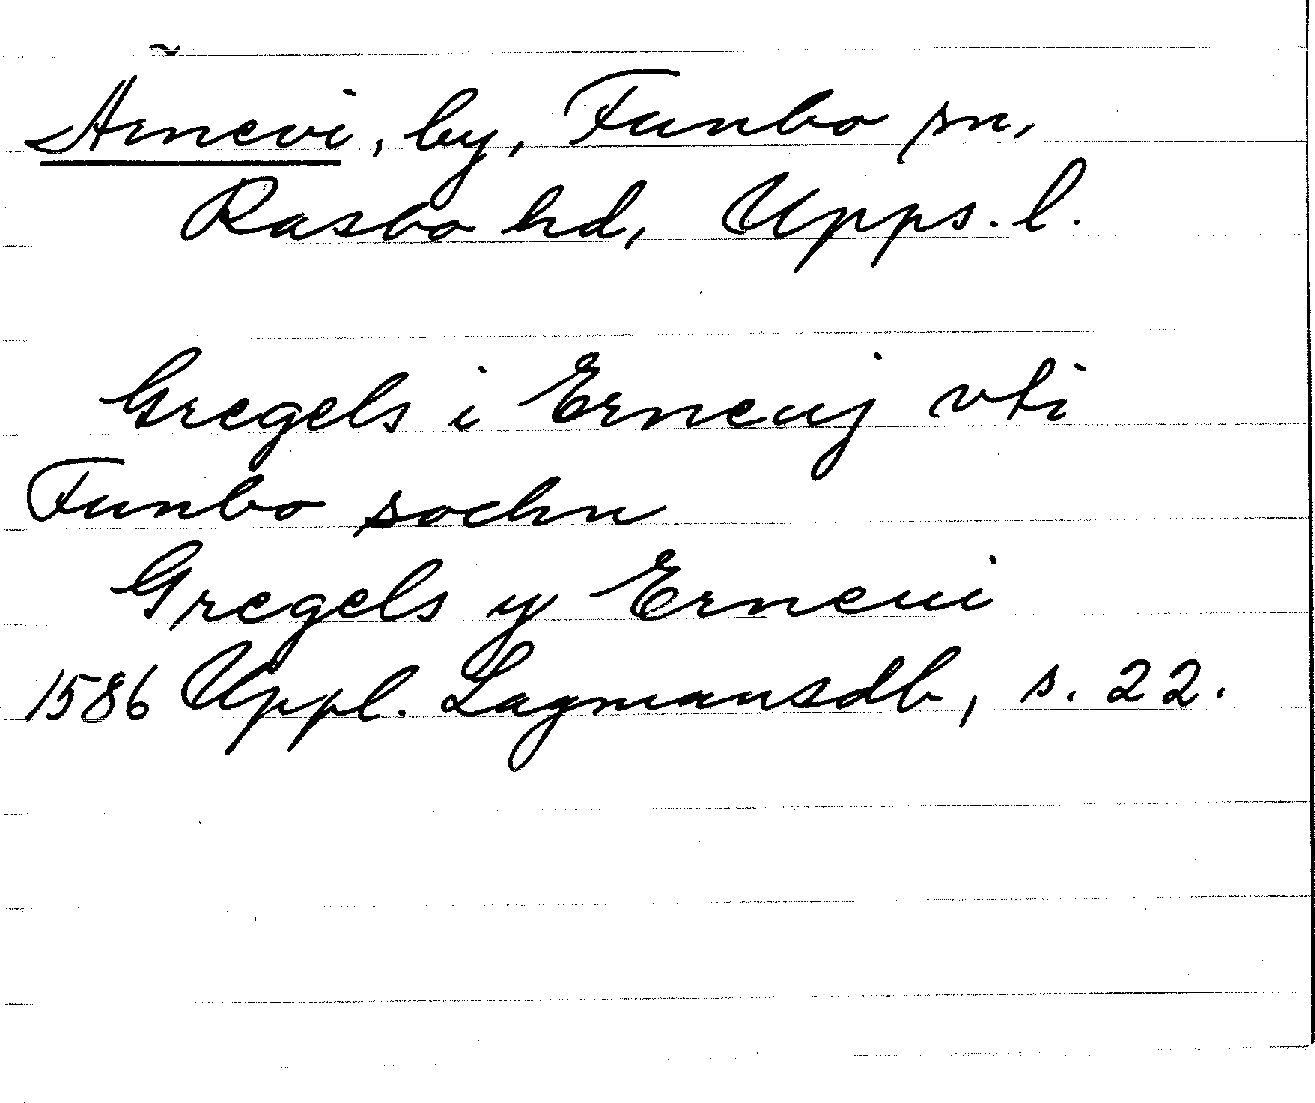 Ärnevi, by, Funbo sn,
Rasbo hd, Upps. l.
Gregels i Erneuj vti
Funbo sochn
Gregels y Erneui
1586 Uppl. Lagmansdb, s. 22.